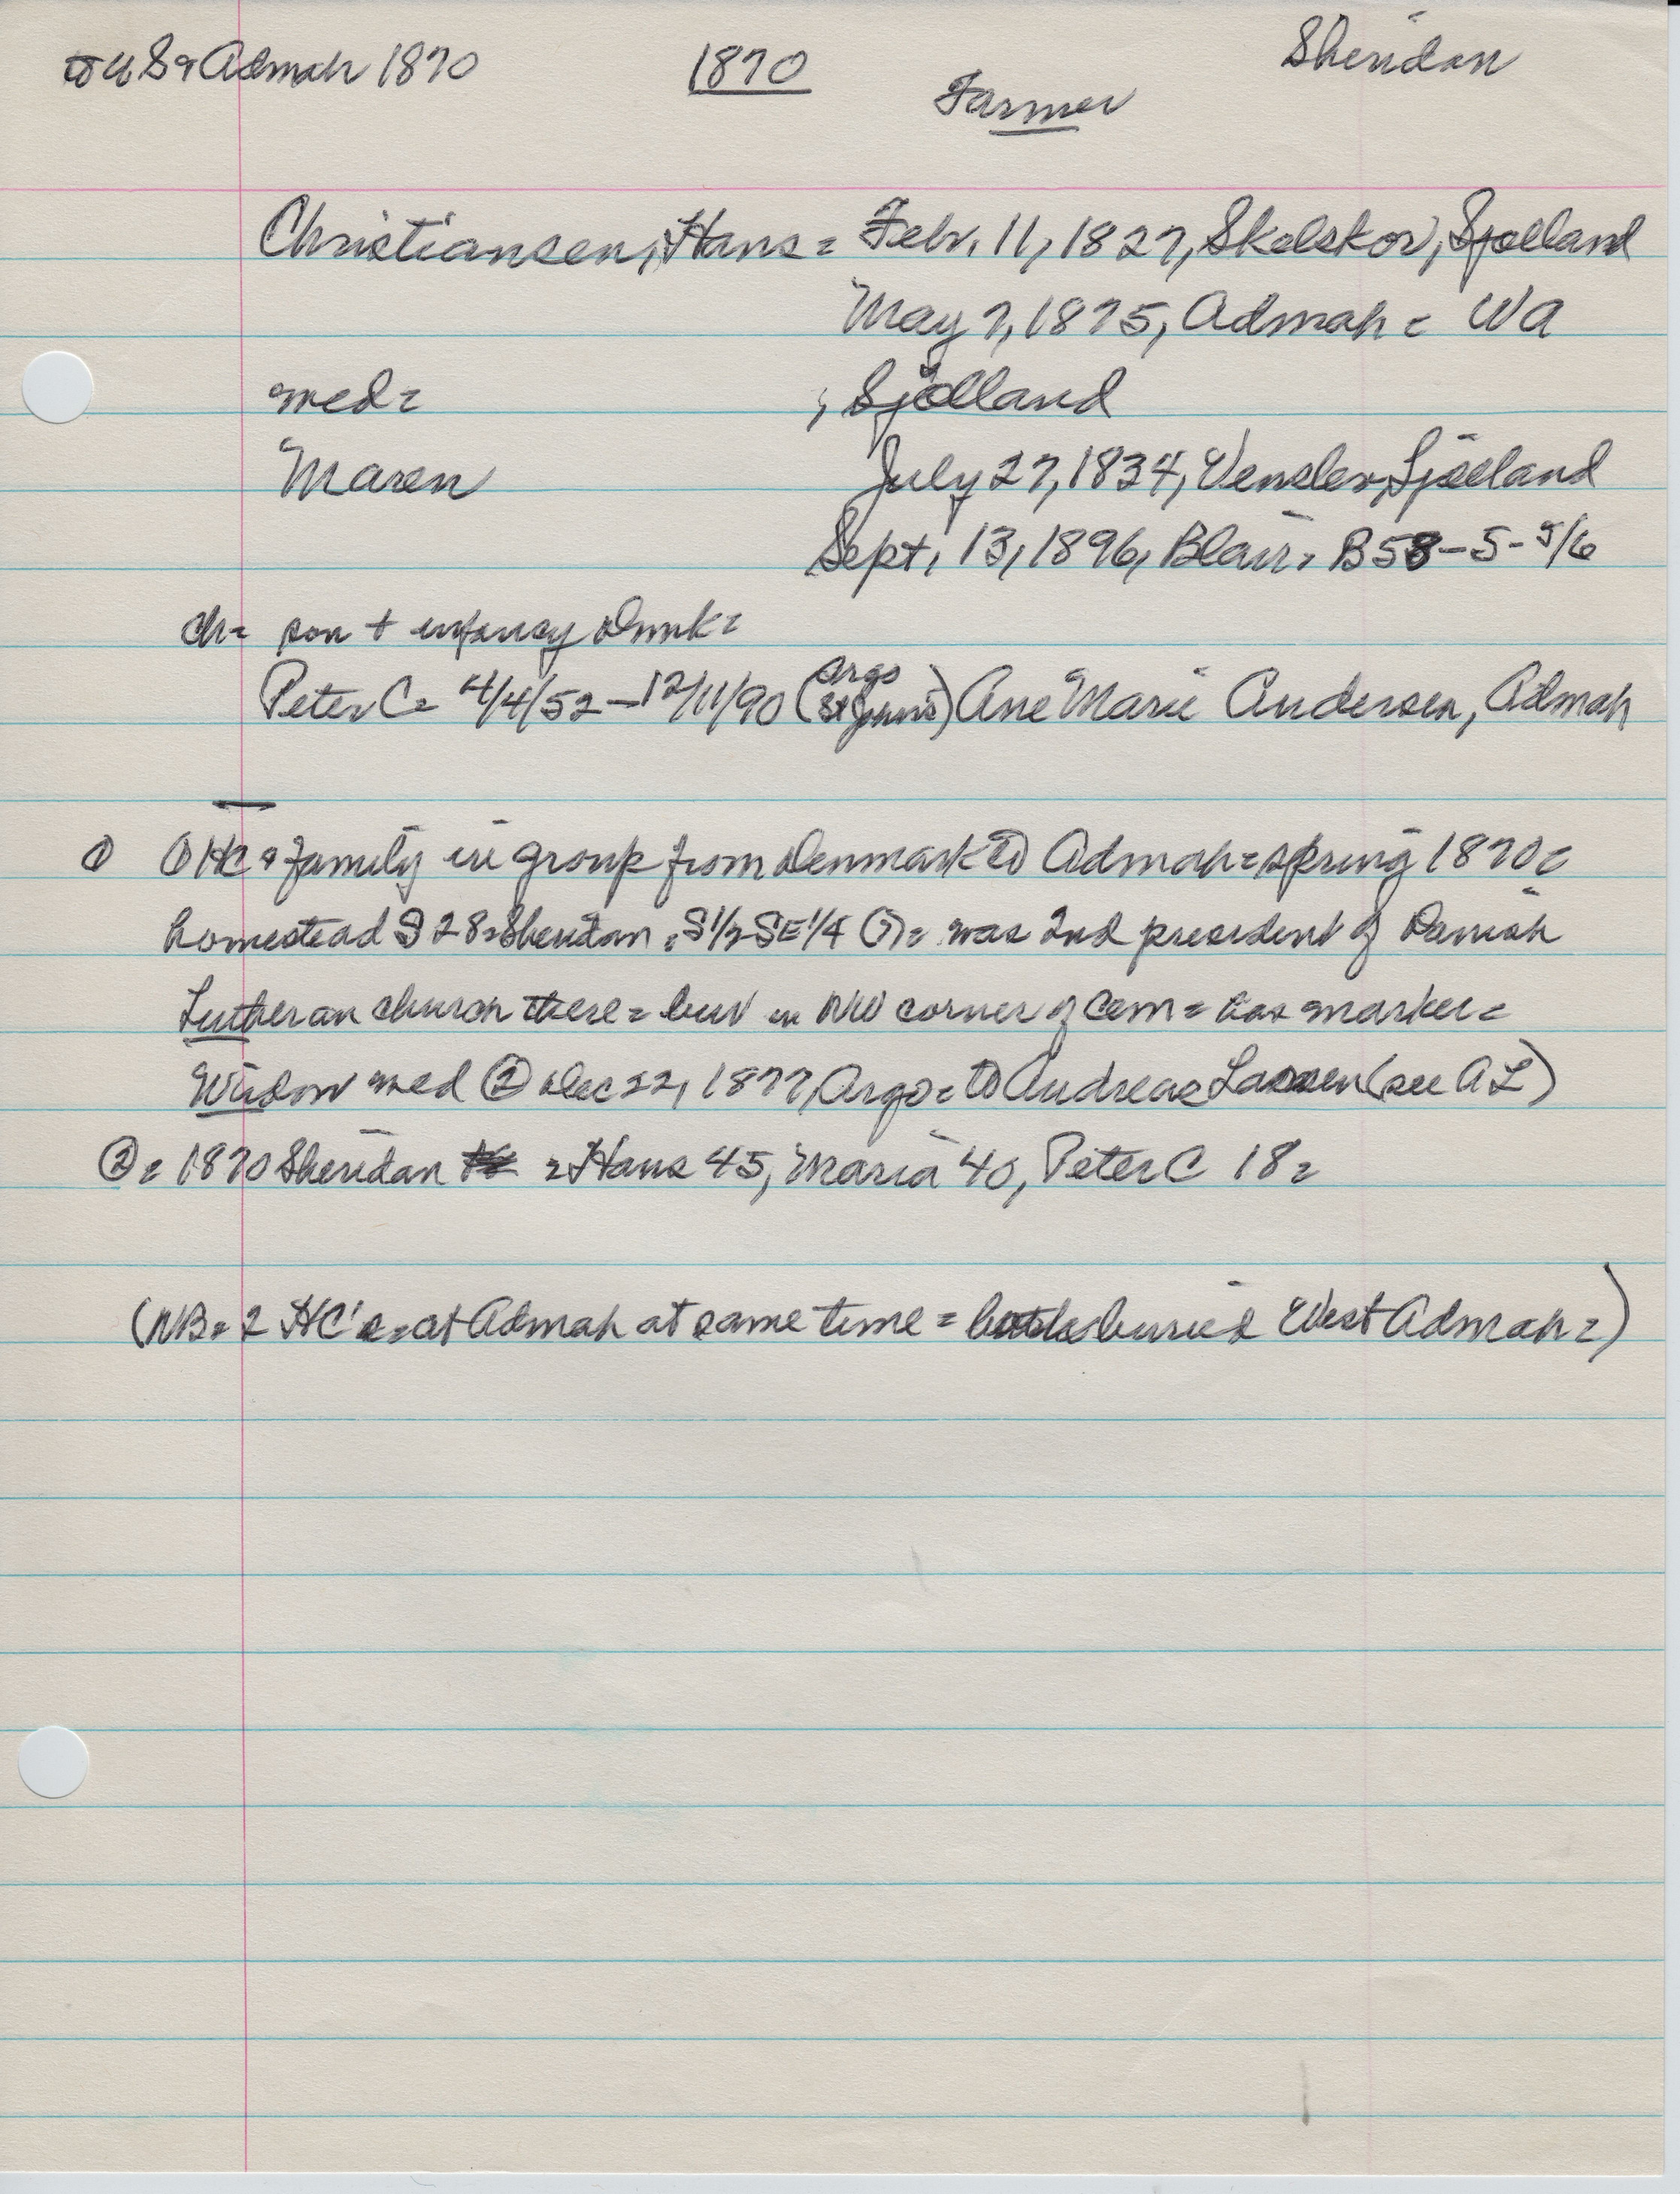 to US & Admah 1870 1870 Sheridan
Farmer
Christiansen, Hans = Febr. 11, 1827, Skelskor, Sjolland
May 7, 1875, Admah = WA
med = , Sjölland
Maren July 27, 1834, Venslev, Sjoelland
Sept. 13, 1896, Blair, B58-5-5/6
ch = son + infancy Dmk =
Peter C = 4/4/52 - 12/11/90 (Argo) Ane Marie Andersen, Admah
① ① HC & family in group from Denmark to Admah = spring 1870 =
homestead S 28 = Sheridan = S1/2 SE1/4 (?) = was 2nd president of Danish
Lutheran church there = bur in NW corner of Cem = has marker =
Widow med ② Dec 22, 1877, Argo = to Andreas Lassen (see AL)
② = 1870 Sheridan = Hans 45, Maria 40, Peter C 18 =
(NB = 2 HC's = at Admah at same time = both buried West Admah =)